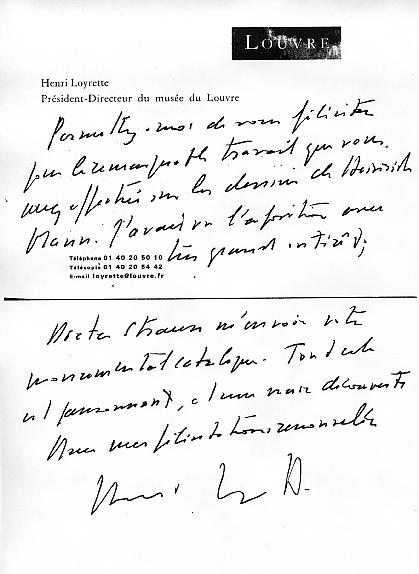 LOUVRE
Henri Loyrette
Président-Directeur du musée du Louvre
Permettez-moi de vous féliciter
pour le remarquable travail que vous
avez effectué sur les dessins de Heinrich
Mann. J'avais vu l'exposition avec
très grand intérêt;
Téléphone 01 40 20 50 10
Télécopie 01 40 20 54 42
E-mail loyrette@louvre.fr
Dieter Strauss m'envoie votre
monumental catalogue. Tout cela
est passionnant, c'est une vraie découverte
Avec mes félicitations renouvelées
Henri